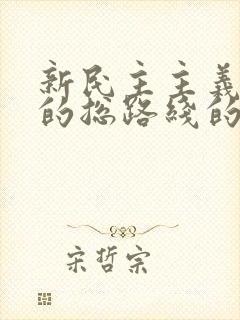 新民主主義
的总路綫的
宋哲宗